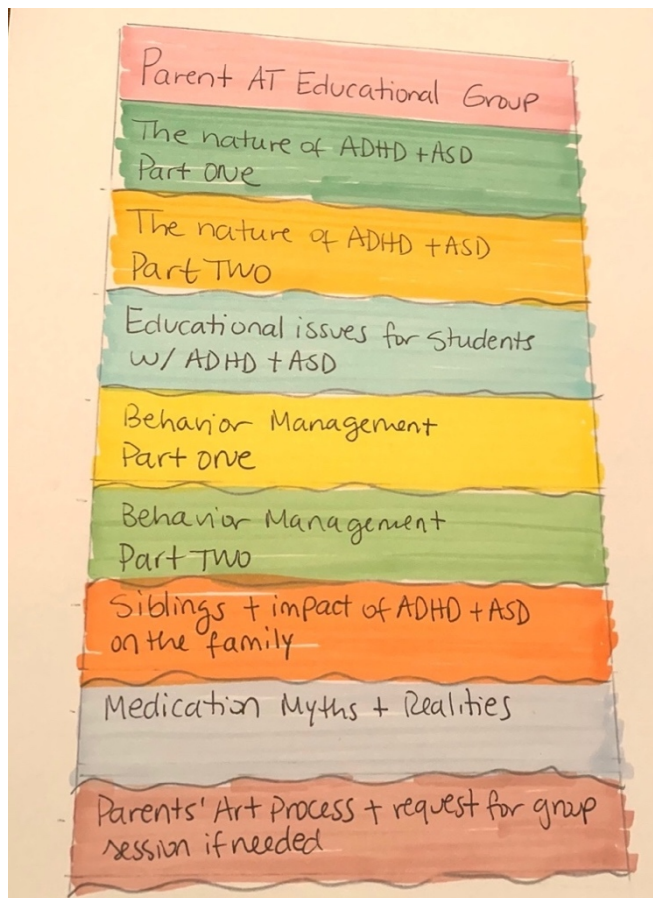 Parent AT Educational Group
The nature of ADHD + ASD
Part One
The nature of ADHD + ASD
Part Two
Educational issues for Students
w/ ADHD + ASD
Behavior Management
Part one
Behavior Management
Part Two
Siblings + impact of ADHD + ASD
on the family
Medication Myths + Realities
Parents' Art Process + request for group
session if needed